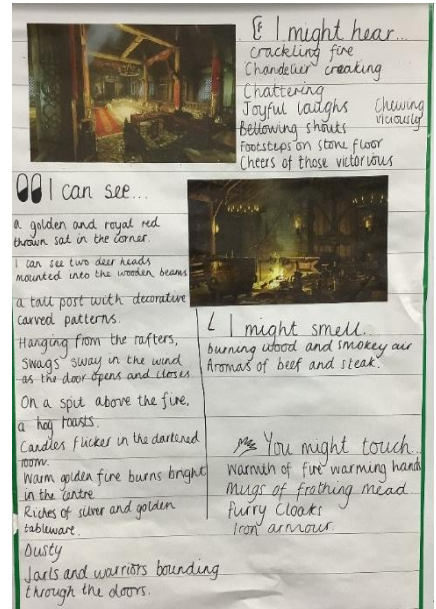 I might hear...
Crackling fire
Chandelier creaking
Chattering
Joyful laughs
Chewing
viciously
Bellowing shouts
Footsteps on stone floor
Cheers of those victorious
I can see...
a golden and royal red
thrown sat in the corner.
I can see two deer heads
mounted into the wooden beams
a tall post with decorative
carved patterns.
Hanging from the rafters,
swags sway in the wind
as the door opens and closes
On a spit above the fire,
a hog roasts.
Candles flicker in the dartened
room.
Warm golden fire burns bright
in the centre
Riches of silver and golden
tableware.
Dusty
Jarls and warriors bounding
through the doors.
I might smell...
burning wood and smokey air
Aromas of beef and steak.
You might touch...
Warmth of fire warming hands
Mugs of frothing mead
Furry Cloaks
Iron armour.